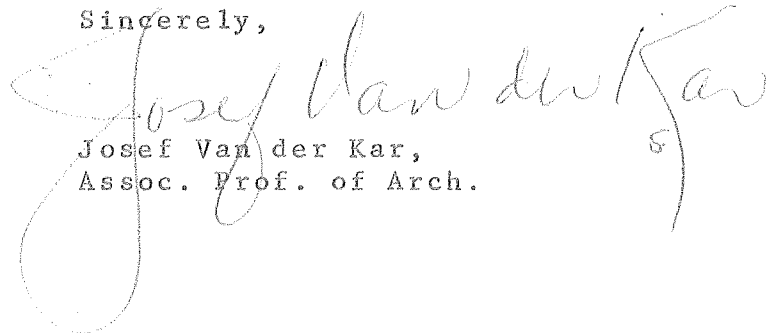 Sincerely,
Josef Van der Kar
Josef Van der Kar,
Assoc. Prof. of Arch.